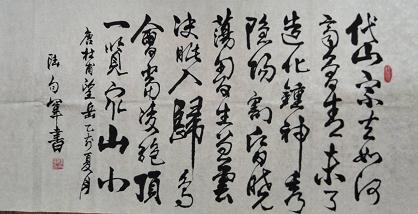 岱宗夫如何
齊魯青未了
造化鍾神秀
陰陽割昏曉
蕩胸生曾雲
決眦入歸鳥
會當凌絶頂
一覽众山小
唐杜甫望岳 夏月
書